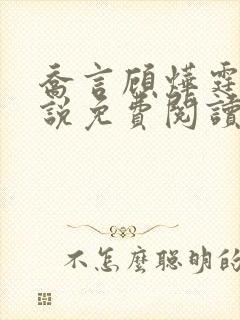 喬言顧燁霆
說免費閱讀
不怎麼聰明的